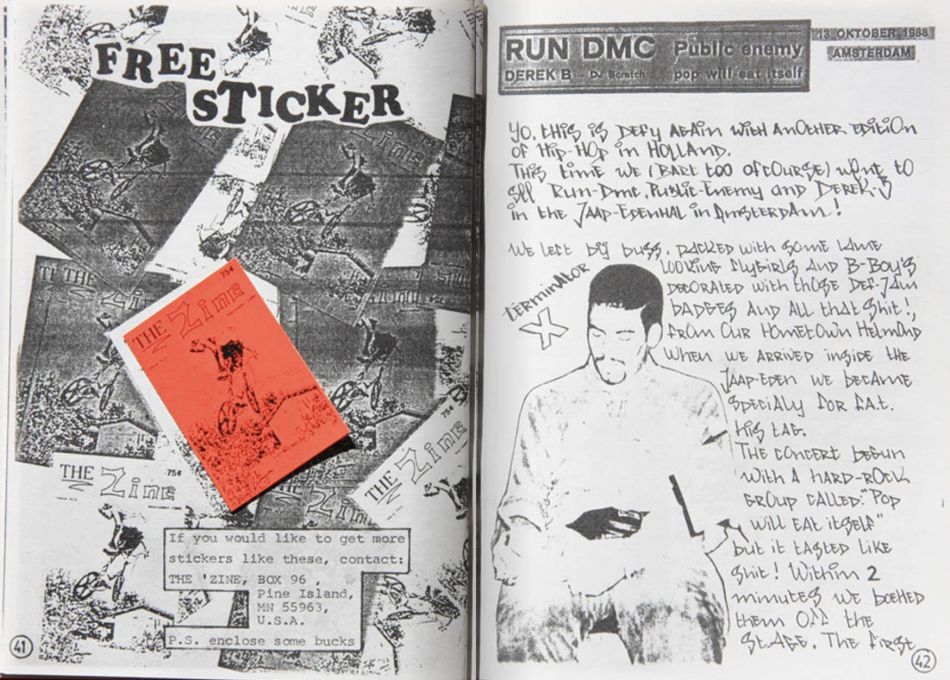 FREE
STICKER
THE Zine
75¢
THE Zine
75¢
THE Zine
75¢
THE Zine
If you would like to get more
stickers like these, contact:
THE 'ZINE, BOX 96 ,
Pine Island,
MN 55963,
U.S.A.
P.S. enclose some bucks
41
RUN DMC Public enemy
DEREK B - DJ Scratch pop will eat itself
13 OKTOBER 1988
AMSTERDAM
Yo, this is Defy again with another edition
of Hip-Hop in HOLLAND.
This time we (Bart too ofcourse) went to
see Run-Dmc, Public-Enemy and Derek-B
in the Jaap-Edenhal in Amsterdam!
We left by buss, packed with some lame
looking flygirls and B-Boy's
decorated with those Def-Jam
badges and all that shit!,
from our hometown Helmond
When we arrived inside the
Jaap-Eden we became
specialy for f.a.t.
his tag.
The concert begun
with a hard-rock
group called: "Pop
will eat itself"
but it tasted like
shit! Within 2
minutes we boehed
them off the
stage. The first
terminator
X
42